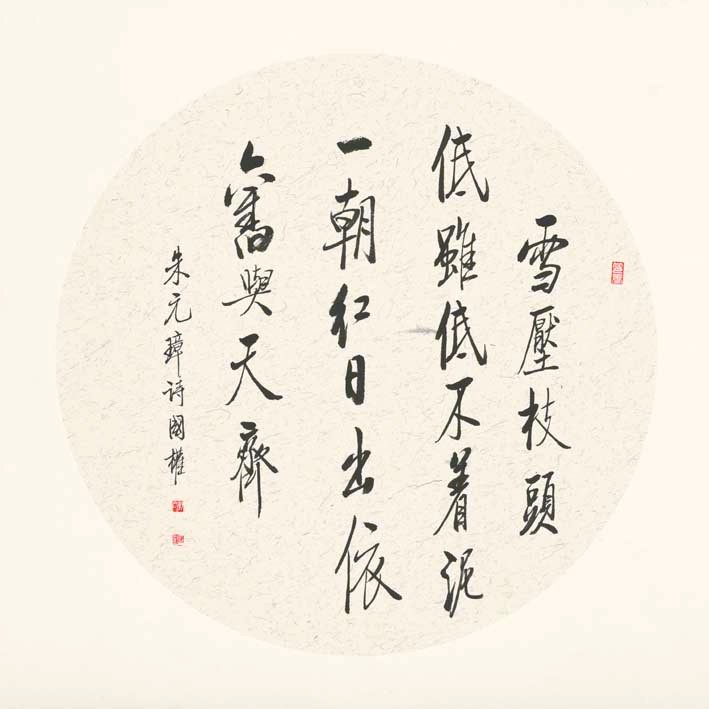 雪壓枝頭
低雖低不着泥
一朝紅日出依
亽舊與天齊
朱元璋詩國權